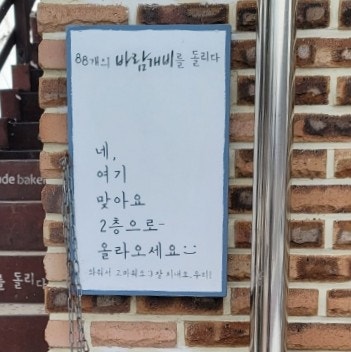 88개의 바람개비를 돌리다
네,
여기
맞아요
2층으로
올라오세요:)
와줘서 고마워요 잘 지내요, 우리!
ude bake
를 돌리다